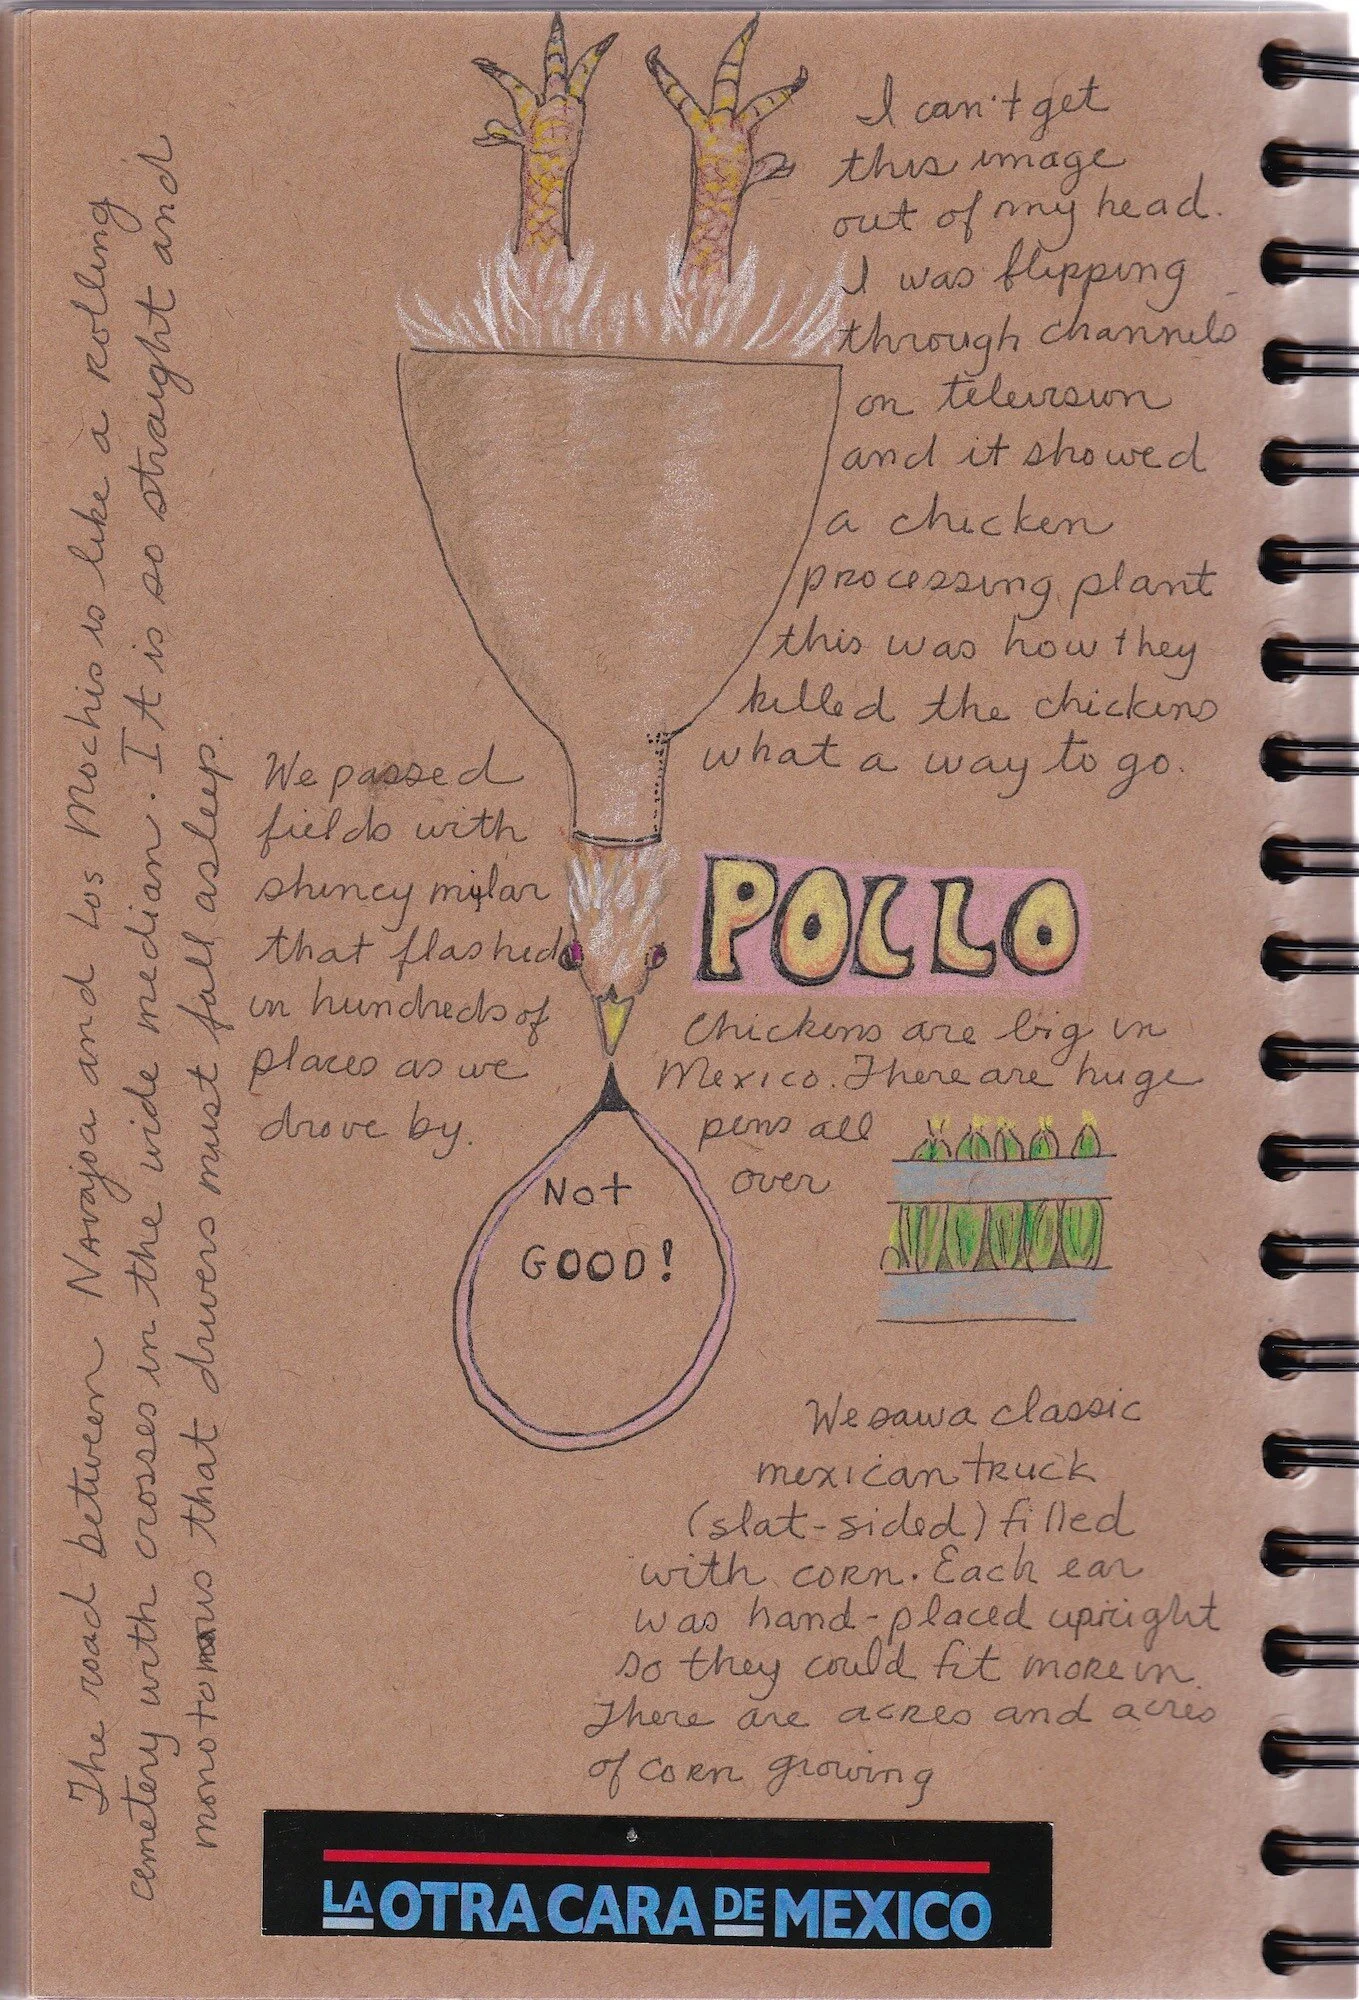 I can't get
this image
out of my head.
I was flipping
through channels
on television
and it showed
a chicken
processing plant
this was how they
killed the chickens
what a way to go.
The road between Navajoa and Los Mochis is like a rolling
cemetery with crosses in the wide median. It is so straight and
monotonous that drivers must fall asleep.
We passed
fields with
shiney mylar
that flashed
in hundreds of
places as we
drove by.
POLLO
Chickens are big in
Mexico. There are huge
pens all
over
Not
GOOD!
We saw a classic
mexican truck
(slat-sided) filled
with corn. Each ear
was hand-placed upright
so they could fit more in.
There are acres and acres
of corn growing
LA OTRA CARA DE MEXICO